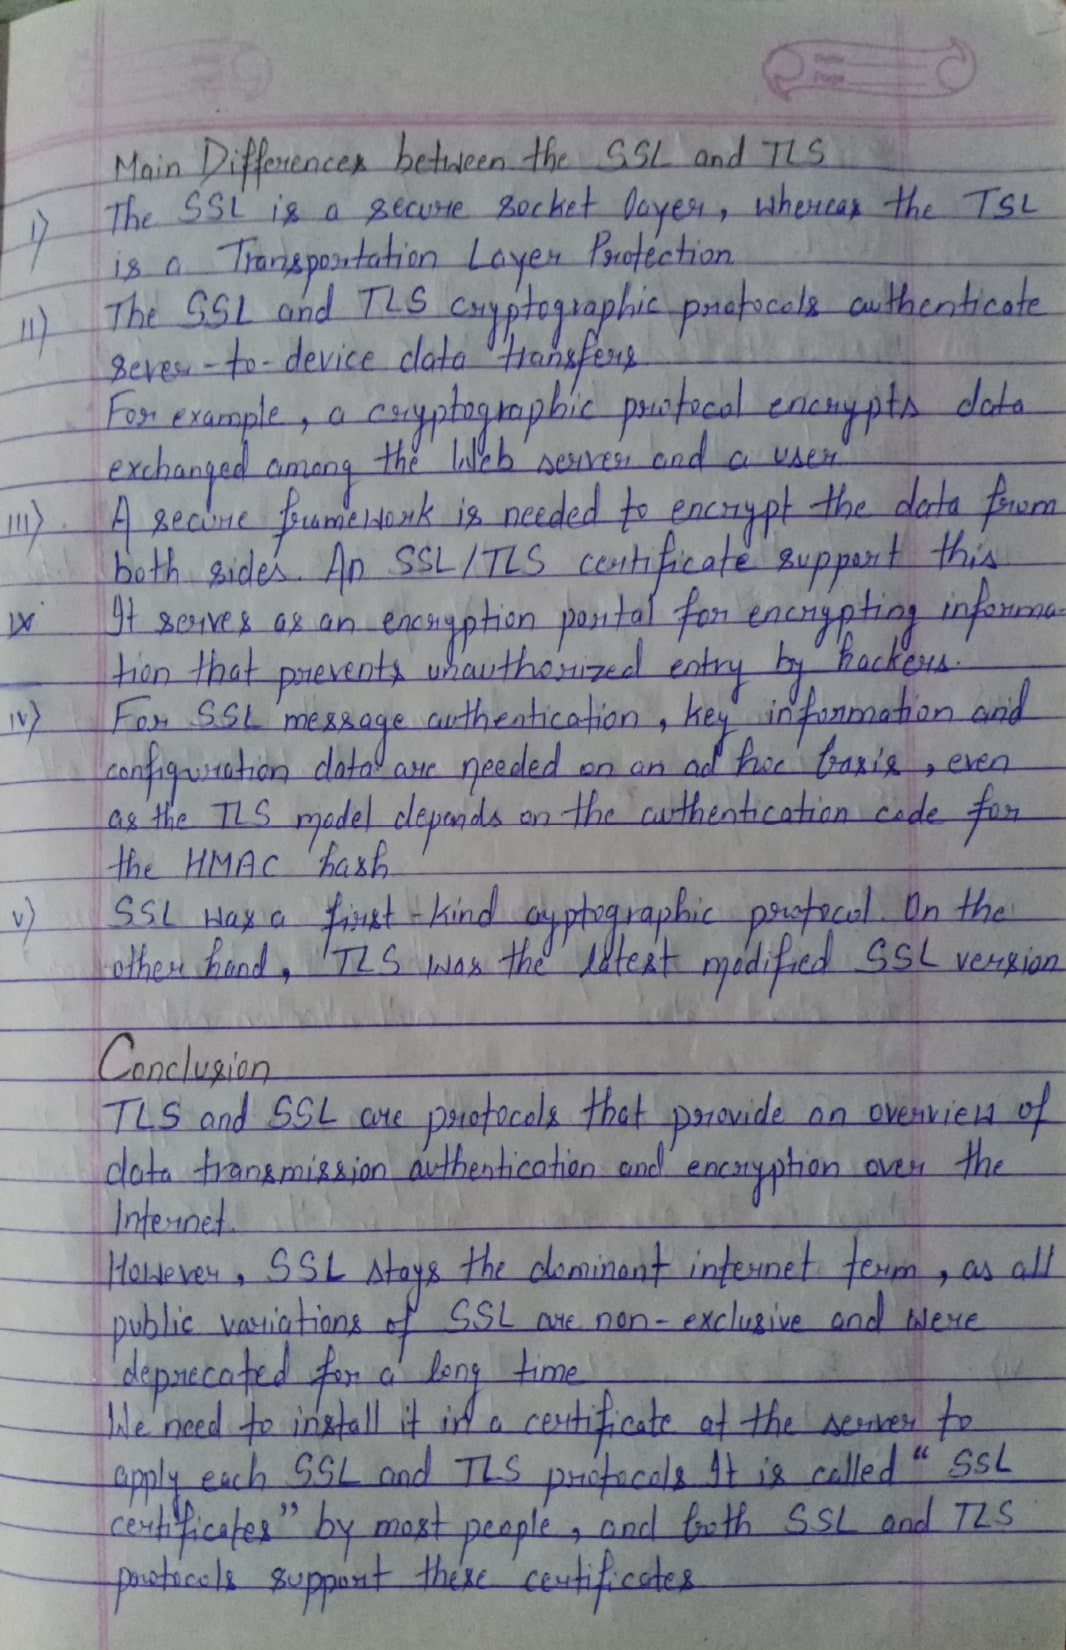 Date
Page
Main Differences between the SSL and TLS
i) The SSL is a secure socket layer, whereas the TSL
is a Transportation Layer Protection
ii) The SSL and TLS cryptographic protocols authenticate
sever-to-device data transfers
For example, a cryptographic protocol encrypts data
exchanged among the Web server and a user
iii) A secure framework is needed to encrypt the data from
both sides. An SSL/TLS certificate support this
It serves as an encryption portal for encrypting informa-
tion that prevents unauthorized entry by hackers.
iv) For SSL message authentication, key information and
configuration data are needed on an ad hoc basis, even
as the TLS model depends on the authentication code for
the HMAC hash
v) SSL was a first-kind cyptographic protocol. On the
other hand, TLS was the latest modified SSL version
Conclusion
TLS and SSL are protocols that provide an overview of
data transmission authentication and encryption over the
Internet.
However, SSL stays the dominant internet term, as all
public variations of SSL are non-exclusive and were
deprecated for a long time
We need to install it in a certificate at the server to
apply each SSL and TLS protocols It is called "SSL
certificates" by most people, and both SSL and TLS
protocols support these certificates